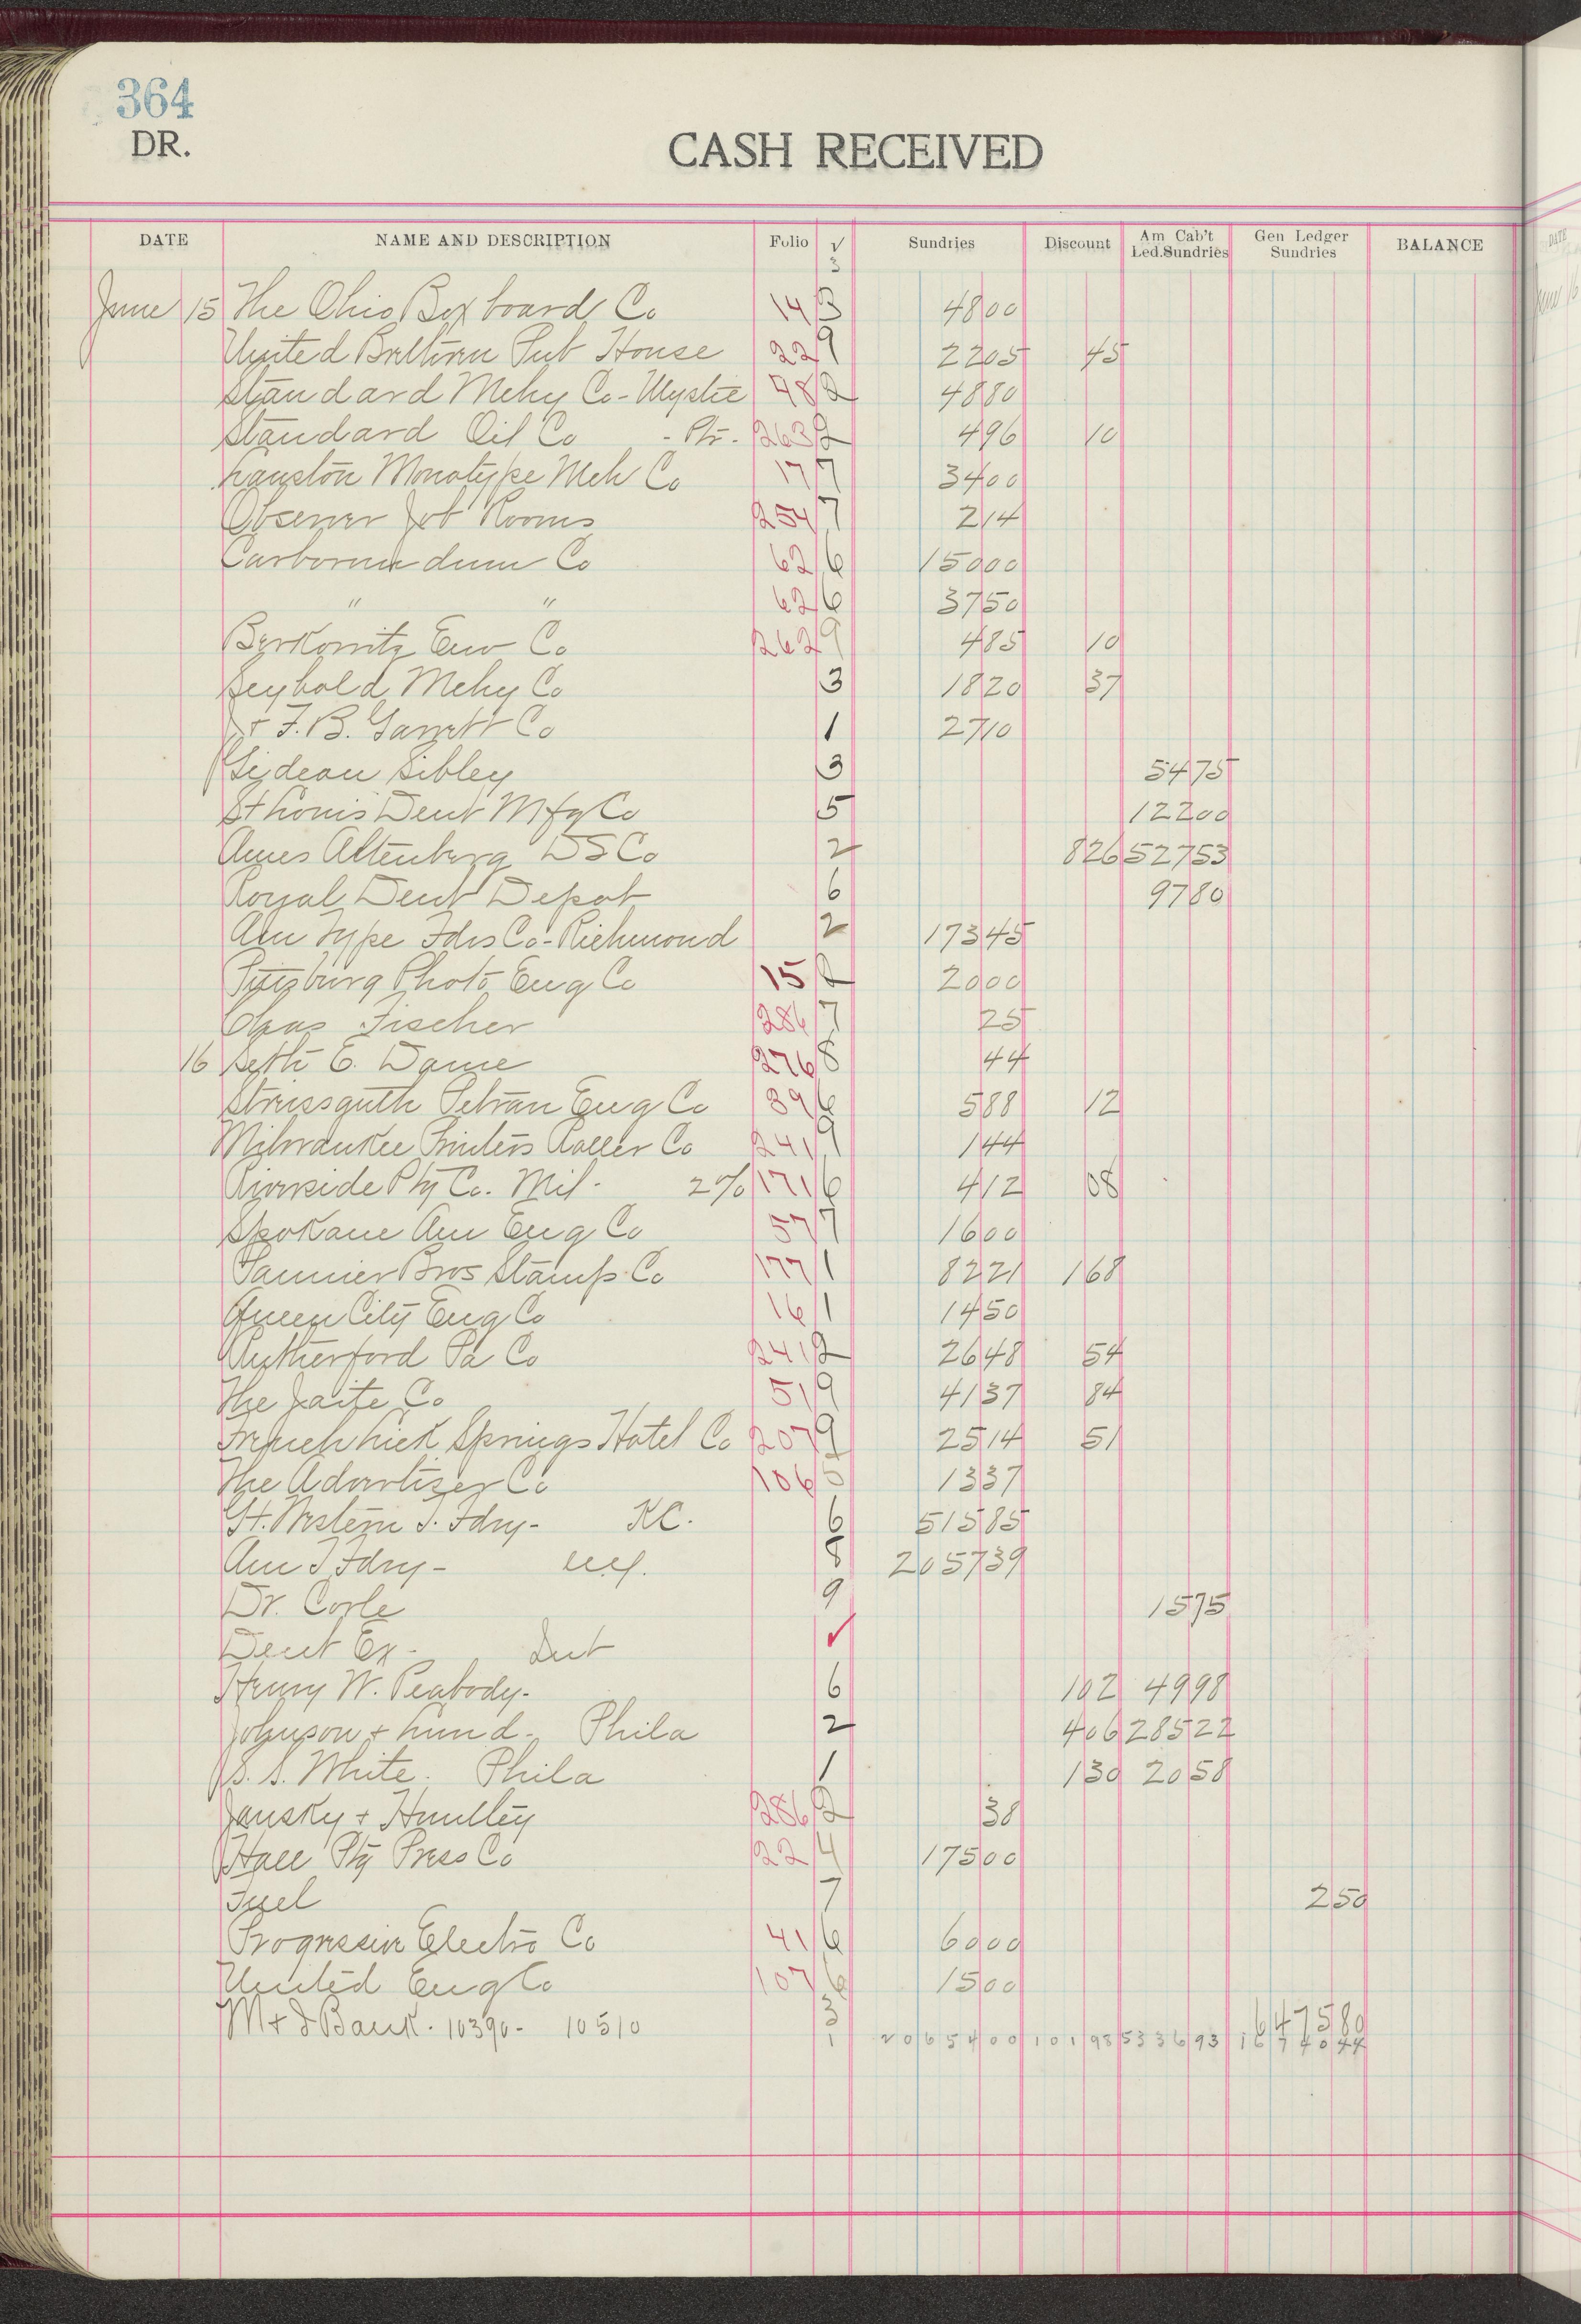 364
DR.
CASH RECEIVED
DATE NAME AND DESCRIPTION Folio √ Sundries Discount Am Cab't Led.Sundries Gen Ledger Sundries BALANCE
3
June 15 The Ohio Box board Co 14 3 48 00
United Brethren Pub House 22 9 22 05 45
Standard Mchy Co - Mystic 48 2 48 80
Standard Oil Co - Ptr. 263 2 4 96 10
Lanston Monotype Mch Co 17 7 34 00
Observer Job Rooms 254 7 2 14
Carborundum Co 62 6 150 00
" " 62 6 37 50
Berkowitz Env Co 262 9 4 85 10
Seybold Mchy Co 3 18 20 37
J + F. B. Garrett Co 1 27 10
Gideon Sibley 3 54 75
St Louis Dent Mfg Co 5 122 00
Ames Altenberg DS Co 2 8 26 527 53
Royal Dent Depot 6 97 80
Am Type Fdrs Co - Richmond 2 173 45
Pittsburg Photo Eng Co 15 2 20 00
Chas Fischer 286 7 25
16 Seth E. Dame 276 8 44
Streissguth Petran Eng Co 39 6 5 88 12
Milwaukee Printers Roller Co 241 9 1 44
Riverside Ptg Co. Mil - 2% 171 6 4 12 08
Spokane Am Eng Co 57 7 16 00
Sannier Bros Stamp Co 177 1 82 21 1 68
Queen City Eng Co 16 1 14 50
Rutherford Pa Co 241 2 26 48 54
The Jaite Co 51 9 41 37 84
French Lick Springs Hotel Co 207 9 25 14 51
The Advertiser Co 106 5 13 37
Gt. Western T. Fdry - KC. 6 515 85
Am T Fdry - 8 2057 39
Dr. Corle 9 15 75
Dent Ex - Dent ✓
Henry W. Peabody - 6 1 02 49 98
Johnson + Lund - Phila 2 4 06 285 22
S. S. White. Phila 1 1 30 20 58
Jansky + 286 2 38
Hall Ptg Press Co 22 4 175 00
Fuel 7 2 50
Progressive Electro Co 41 6 60 00
United Eng Co 107 6 15 00
M + J Bank - 10390 - 10510 3 6475 80
1 20654 00 101 98 5336 93 16740 44